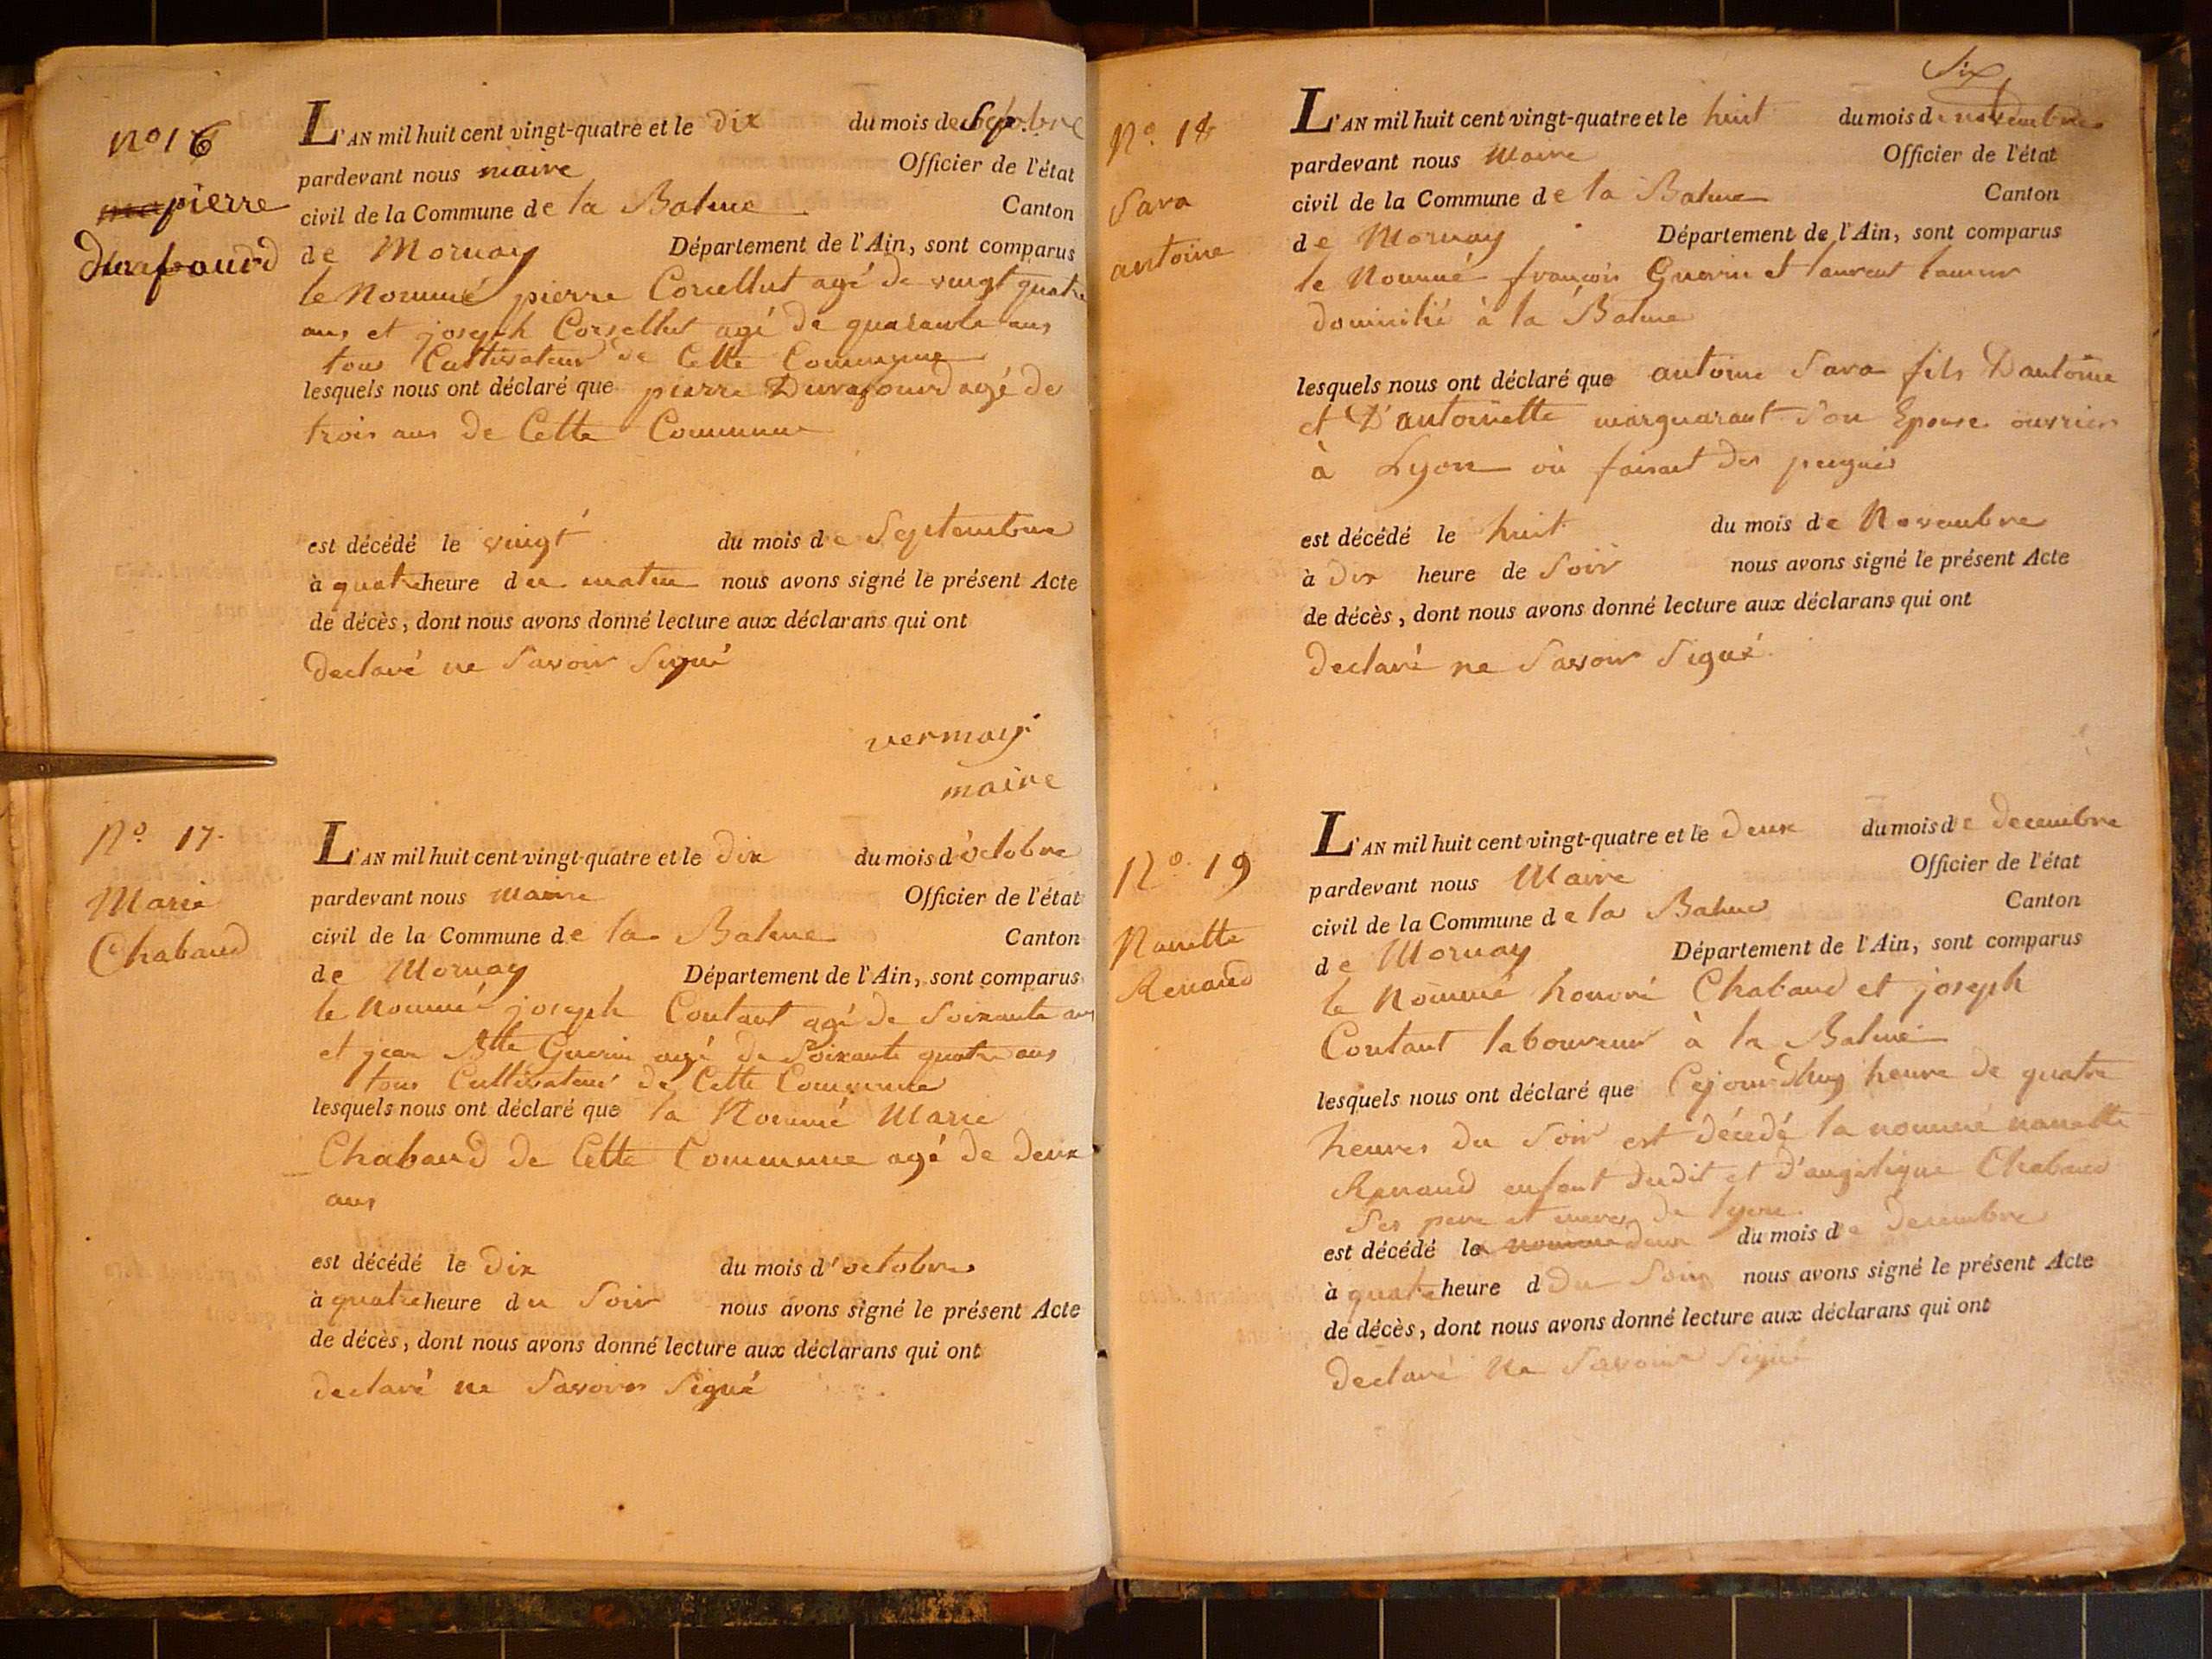 No 16
pierre
Durafourd
L'AN mil huit cent vingt-quatre et le dix du mois de
pardevant nous maire Officier de l'état
civil de la Commune de la Balme Canton
de Mornay Département de l'Ain, sont comparus
le Nommé pierre Corcellut agé de vingt quatre
ans et joseph Corsellut agé de quarante ans
tous Cultivateur de Cette Commune
lesquels nous ont déclaré que pierre Durafourd agé de
trois ans De Cette Commune
est décédé le vingt du mois de Septembre
à quatre heure du matin nous avons signé le présent Acte
de décès, dont nous avons donné lecture aux déclarans qui ont
Declaré ne Savoir Signé
maire
No 17.
Marie
Chabaud
L'AN mil huit cent vingt-quatre et le Dix du mois d'octobre
pardevant nous Maire Officier de l'état
civil de la Commune de la Balme Canton
de Mornay Département de l'Ain, sont comparus
le Nommé joseph Contant agé de Soixante ans
et jean Btte Guerin agé de Soixante quatre ans
tous Cultivateur de Cette Commune
lesquels nous ont déclaré que la Nommé Marie
Chabaud de Cette Commune agé de Deux
ans
est décédé le Dix du mois d'octobre
à quatre heure du Soir nous avons signé le présent Acte
de décès, dont nous avons donné lecture aux déclarans qui ont
declaré ne Savoir Signé
Six
No. 18
Sara
antoine
L'AN mil huit cent vingt-quatre et le huit du mois de novembre
pardevant nous Maire Officier de l'état
civil de la Commune de la Balme Canton
de Mornay Département de l'Ain, sont comparus
le Nommé françois Guerin et laurent
domicilié à la Balme
lesquels nous ont déclaré que antoine Sara fils D'antoine
et D'antoinette marguarant Son Epouse ouvrier
à Lyon où faisant des peignes
est décédé le huit du mois de Novembre
à Dix heure de Soir nous avons signé le présent Acte
de décès, dont nous avons donné lecture aux déclarans qui ont
Declaré ne Savoir Signé.
No. 19
Nanette
Renaud
L'AN mil huit cent vingt-quatre et le Deux du mois de Decembre
pardevant nous Maire Officier de l'état
civil de la Commune de la Balme Canton
de Mornay Département de l'Ain, sont comparus
le Nommé honoré Chabaud et joseph
Contant laboureur à la Balme
lesquels nous ont déclaré que Cejourd'huy heure de quatre
heures du Soir est décédé la nommé nanette
Renaud enfant dudit et d'angelique Chabaud
Ses pere et mere de lyon
est décédé le nomme deux du mois de Decembre
à quatre heure d Du Soir nous avons signé le présent Acte
de décès, dont nous avons donné lecture aux déclarans qui ont
Declaré Ne Savoir Signé